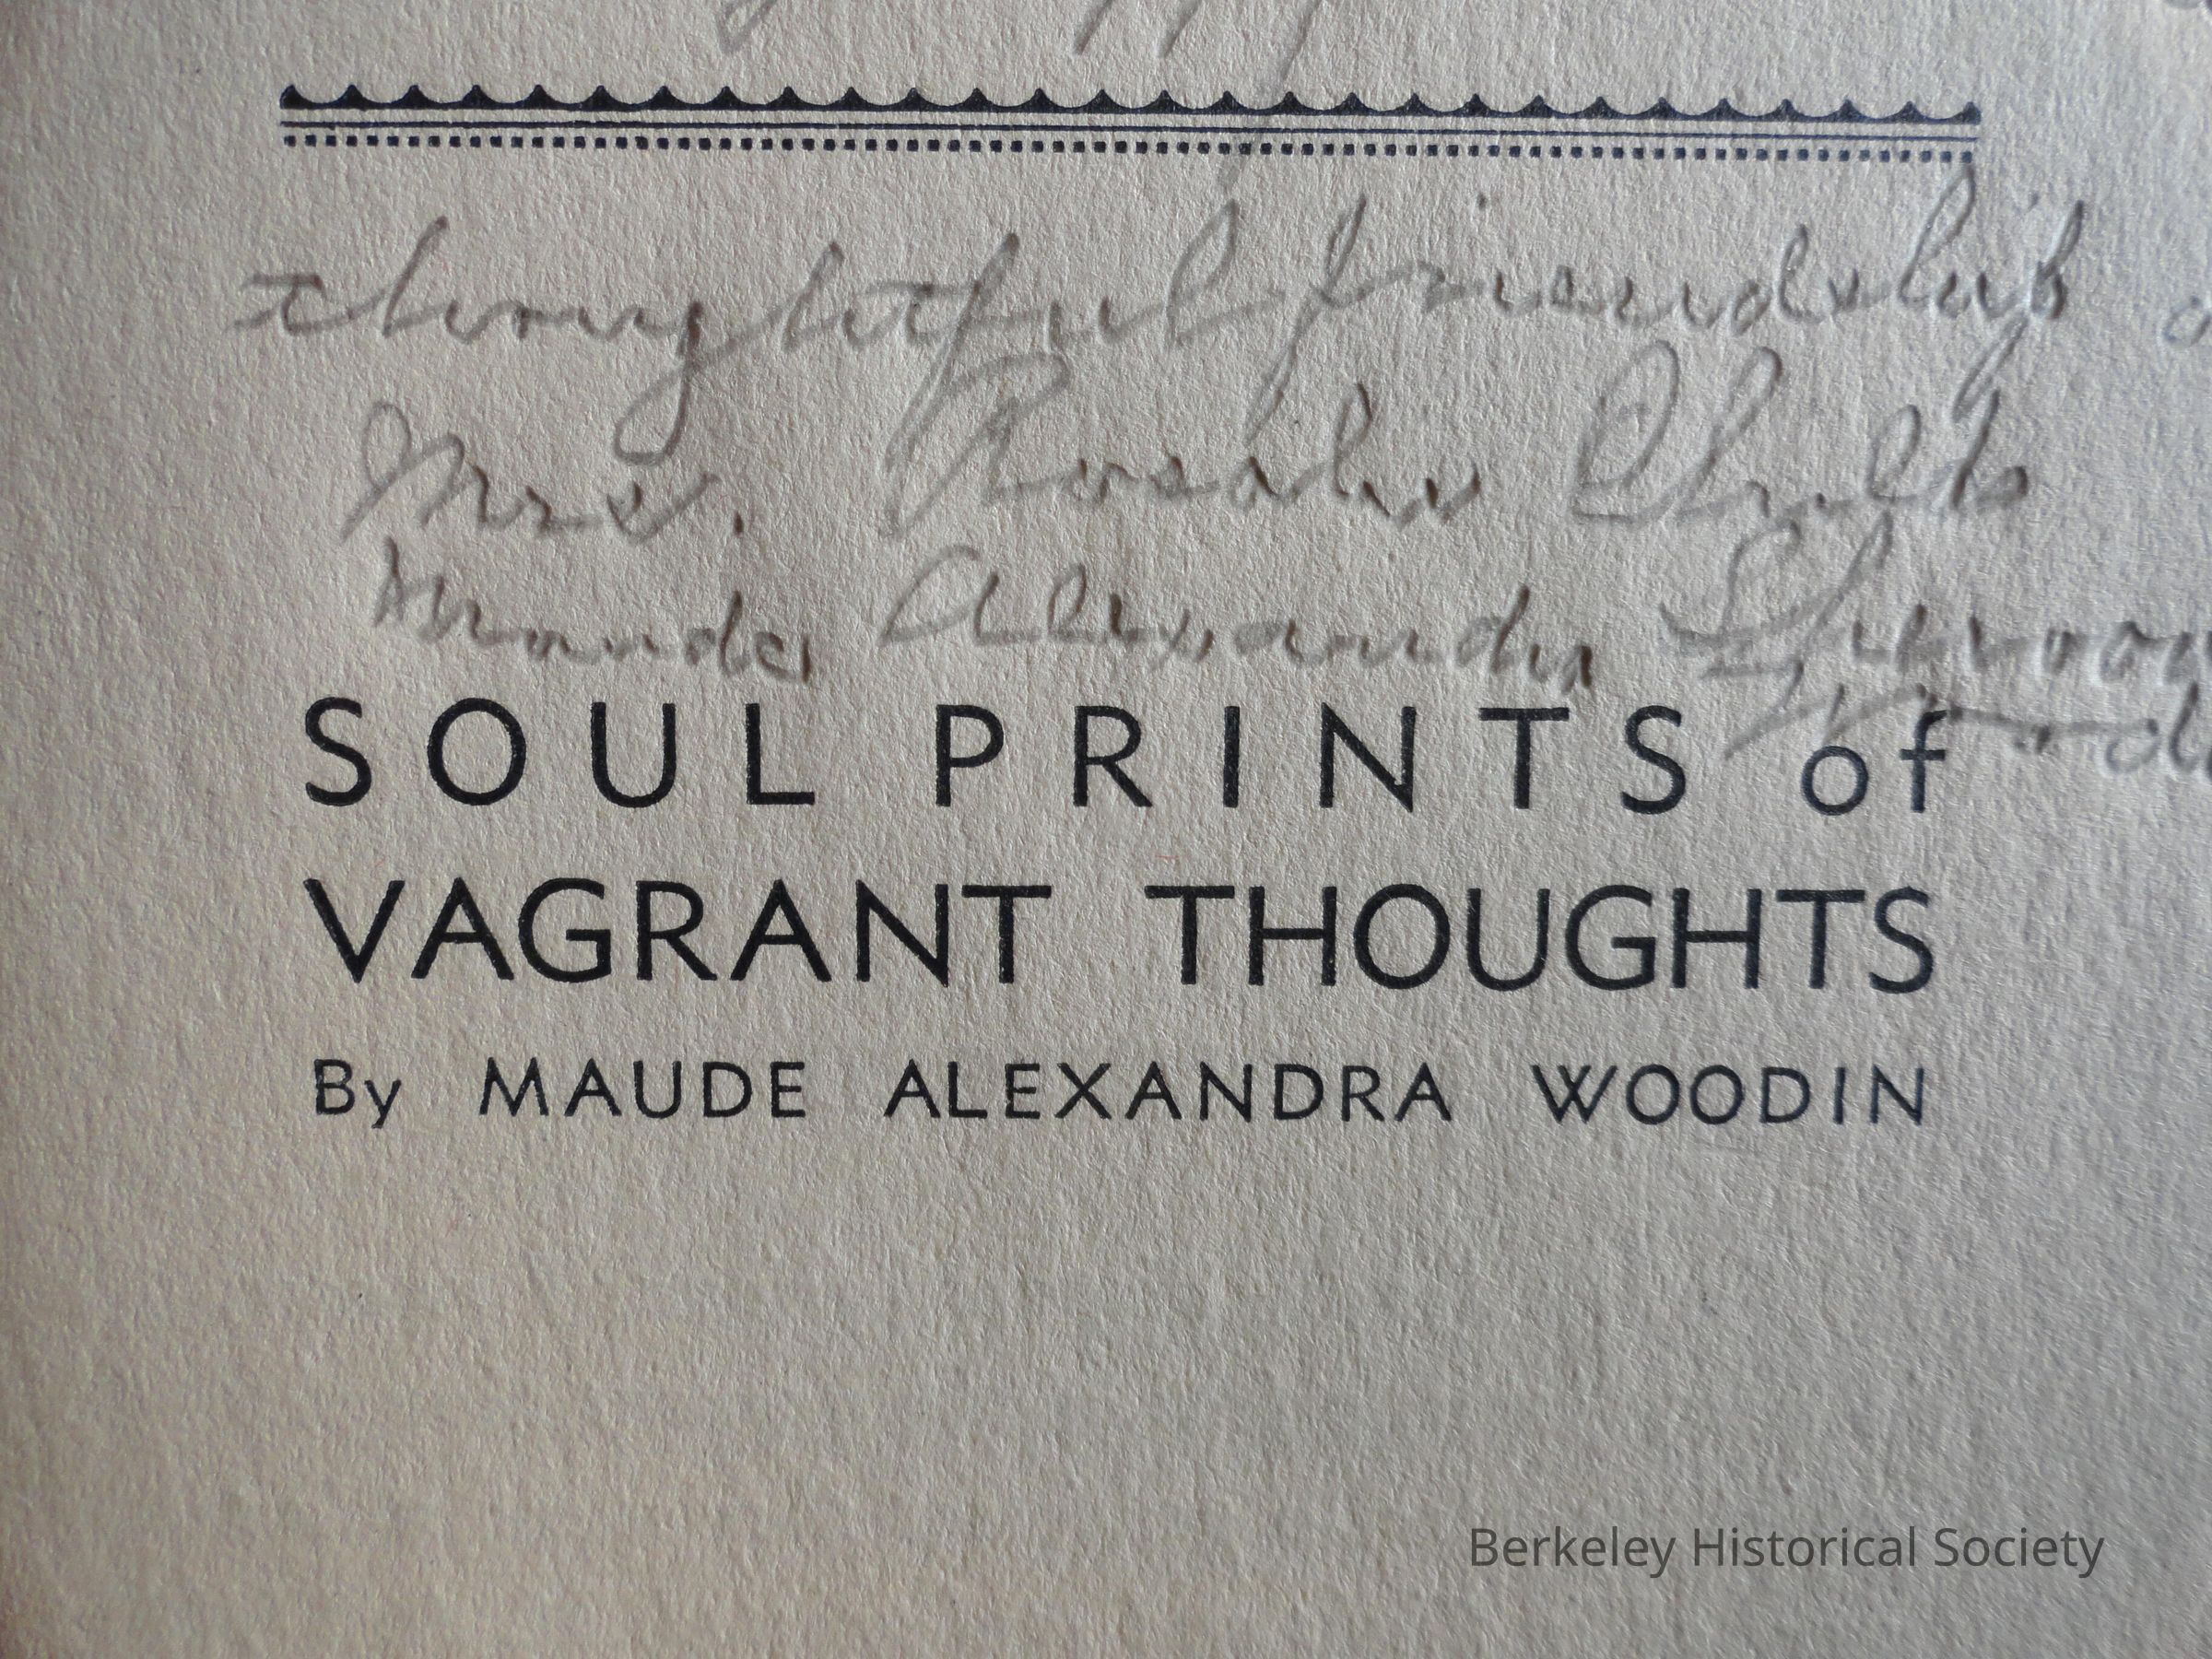 thoughtful friendship
Mrs. Rosalie
Maude Alexandra
SOUL PRINTS of
VAGRANT THOUGHTS
By MAUDE ALEXANDRA WOODIN
Berkeley Historical Society